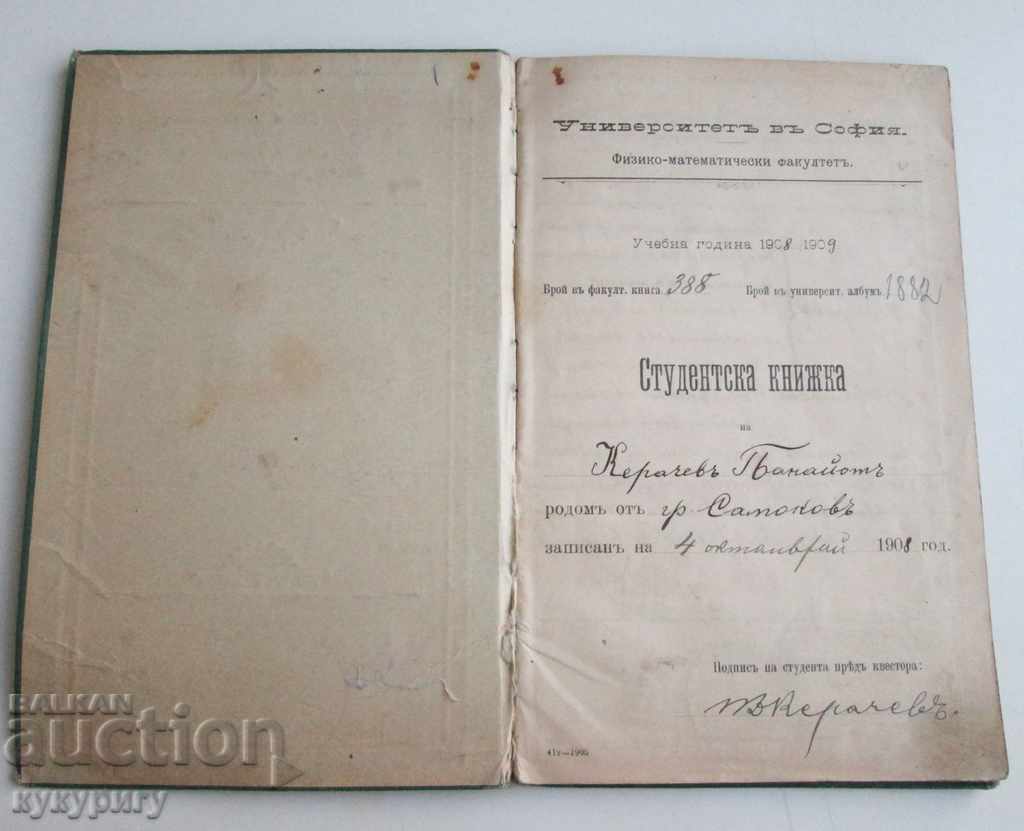 Университетъ въ София.
Физико-математически факултетъ.
Учебна година 1908 1909
Брой въ факулт. книга 388 Брой въ университ. албумъ 1882
Студентска книжка
на
Керачевъ Панайотъ
родомъ отъ гр Самоковъ
записанъ на 4 октомврий 1908 год.
Подпись на студента прѣдъ квестора:
Керачевъ.
BALKAN
auction
кукуригу